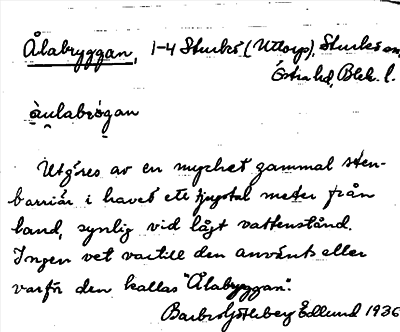 Ålabryggan, 1-4 Sturkö (Uttorp), Sturkö sn,
Östra hd, Blek. l.
àulabrøgan
Utgöres av en mycket gammal sten-
barriär i havet ett tjugotal meter från
land, synlig vid lågt vattenstånd.
Ingen vet vartill den använts eller
varför den kallas "Ålabryggan".
Barbro Götherberg Edlund 1936